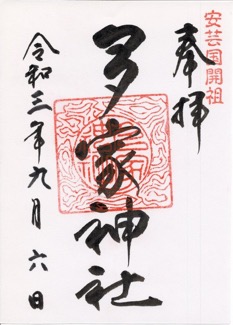 安芸国開祖
奉拝
多家神社
令和三年九月六日